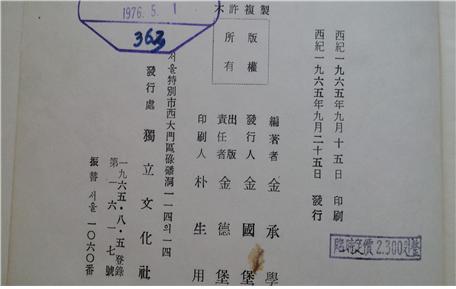 不許複製
版權
所有
西紀一九六五年九月十五日 印刷
西紀一九六五年九月二十五日 發行
編著者 金承學
發行人 金國堡
出版
責任者 金德堡
印刷人 朴生用
서울特別市西大門區碌磻洞一一四의一四
發行處 獨立文化社
一九六五·八·五登錄
第一六一七號
振替 서울 一〇六〇番
1976. 5. 1
363
臨時定價 2,300원整